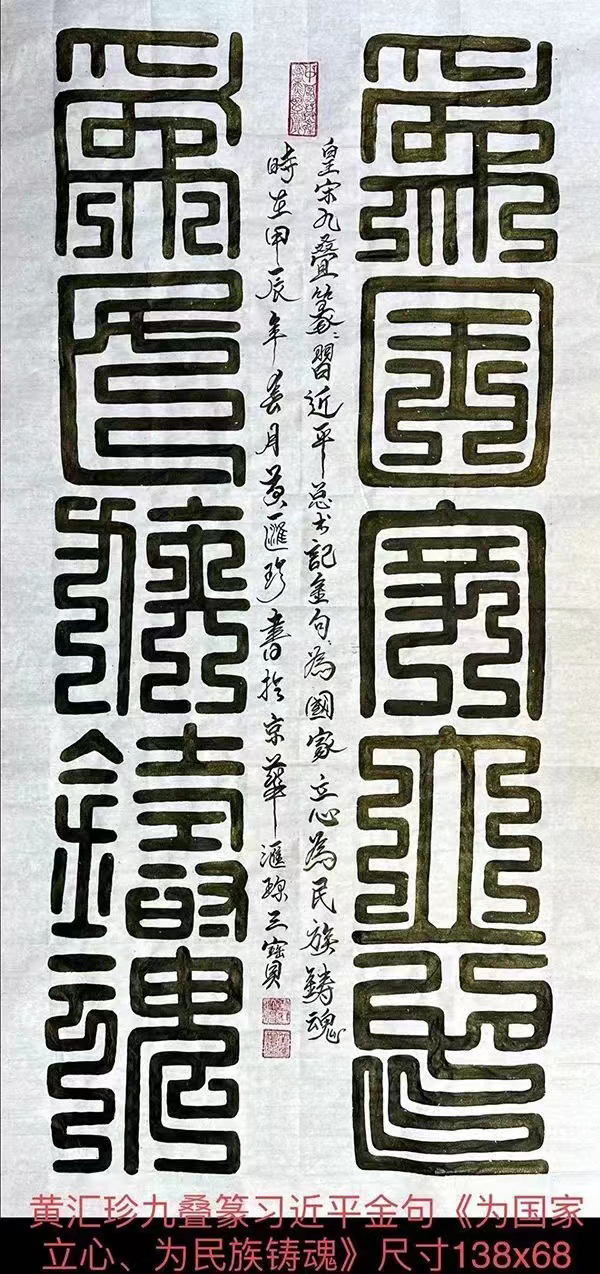 為國家立心
皇宋九叠篆:習近平总书記金句:為國家立心為民族鑄魂
時在甲辰年春月黄滙珍書於京華滙珎三寶
為民族鑄魂
黄汇珍九叠篆习近平金句《为国家
立心、为民族铸魂》尺寸138x68